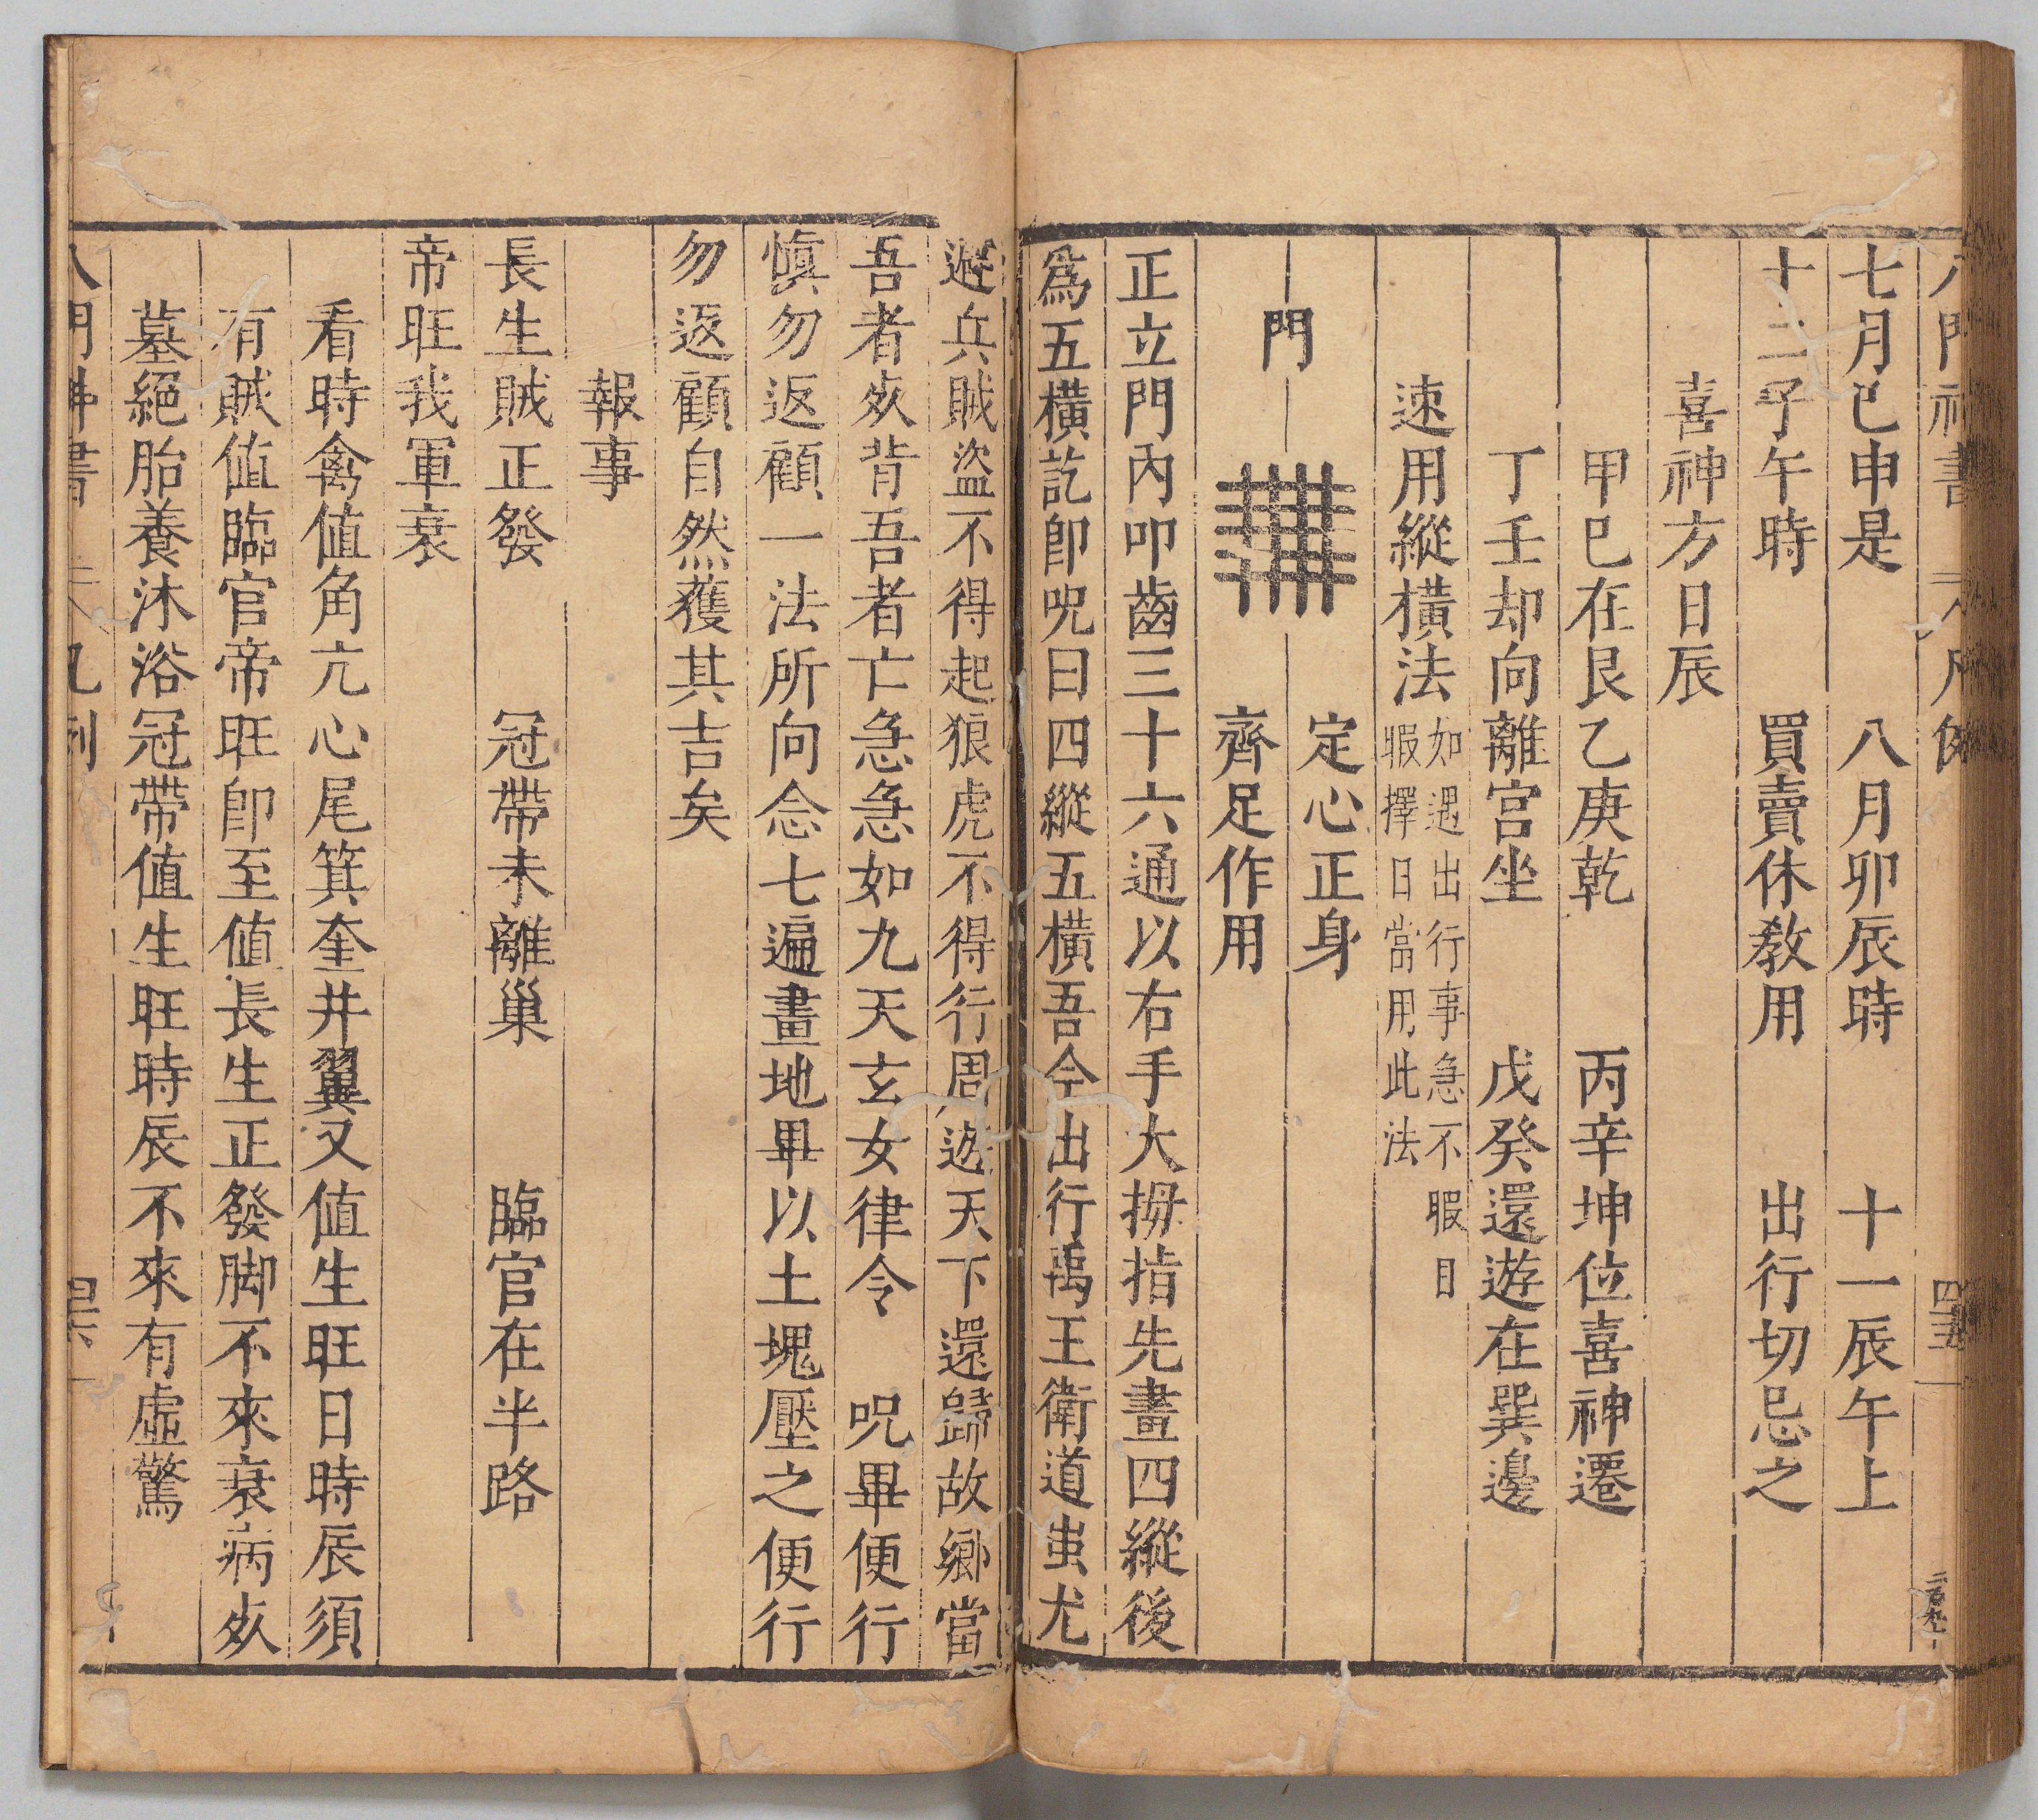 七月巳申是　八月卯辰時　十一辰午上
十二子午時　買賣休教用　出行切忌之
喜神方日辰
甲巳在艮乙庚乾　丙辛坤位喜神遷
丁壬却向離宮坐　戊癸還遊在巽邊
速用縱橫法
如遇出行事急不暇目
暇擇日當用此法
定心正身
門
齊足作用
正立門內叩齒三十六通以右手大拇指先畫四縱後
為五橫訖卽呪曰四縱五橫吾今出行禹王衛道蚩尤
避兵賊盜不得起狼虎不得行周返天下還歸故鄉當
吾者死背吾者亡急急如九天玄女律令　呪畢便行
慎勿返顧一法所向念七遍畫地畢以土塊壓之便行
勿返顧自然獲其吉矣
報事
長生賊正發　冠帶未離巢　臨官在半路
帝旺我軍衰
看時禽值角亢心尾箕奎井翼又值生旺日時辰須
有賊值臨官帝旺卽至值長生正發脚不來衰病死
墓絕胎養沐浴冠帶值生旺時辰不來有虛驚